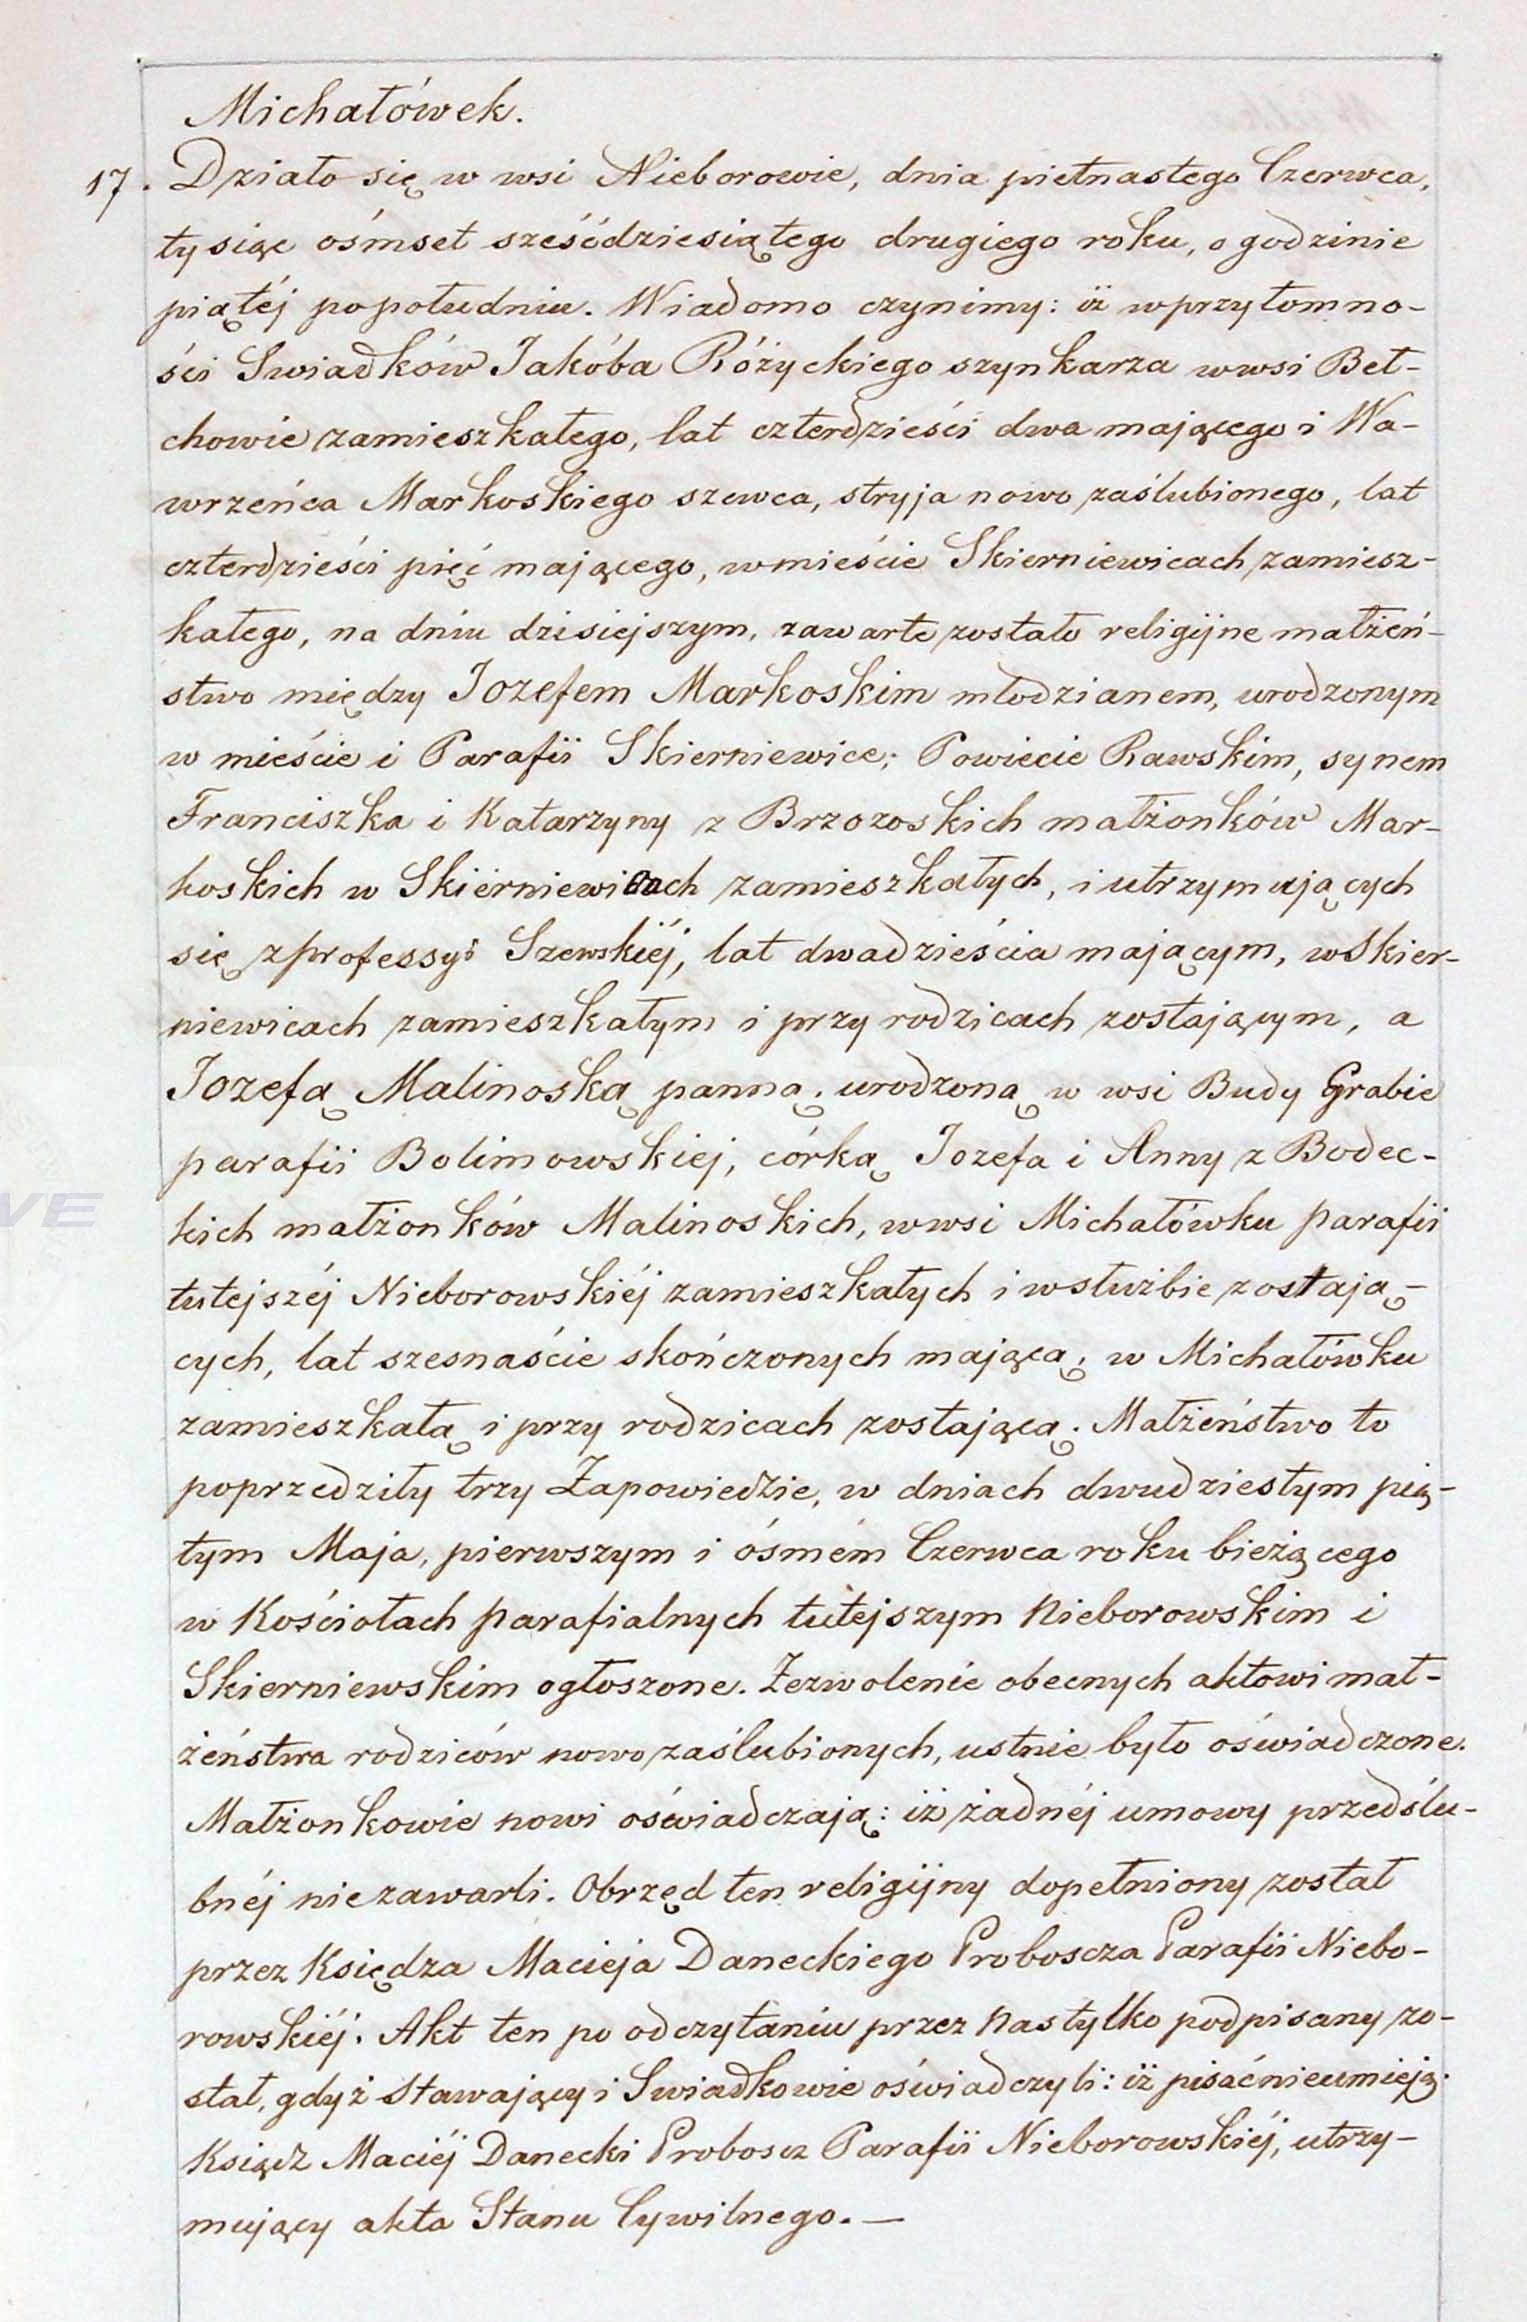 Michałówek.
17. Działo się w wsi Nieborowie, dnia piętnastego Czerwca,
tysiąc ośmset sześćdziesiątego drugiego roku, o godzinie
piątéj popołudniu. Wiadomo czynimy: iż wprzytomno-
ści Swiadków Jakóba Różyckiego szynkarza wwsi Beł-
chowie zamieszkałego, lat czterdzieści dwa mającego i Wa-
wrzeńca Markoskiego szewca, stryja nowo zaślubionego, lat
czterdzieści pięć mającego, wmieście Skierniewicach zamiesz-
kałego, na dniu dzisiejszym, zawarte zostało religijne małżeń-
stwo między Jozefem Markoskim młodzianem, urodzonym
w mieście i Parafii Skierniewice; Powiecie Rawskim, synem
Franciszka i Katarzyny z Brzozoskich małżonków Mar-
koskich w Skierniewicach zamieszkałych, i utrzymujących
się zprofessyi Szewskiéj, lat dwadzieścia mającym, wSkier-
niewicach zamieszkałym i przy rodzicach zostającym, a
Jozefą Malinoską panną, urodzoną w wsi Budy Grabie
parafii Bolimowskiej, córką Jozefa i Anny z Bodec-
kich małżonków Malinoskich, wwsi Michałówku parafii
tutejszéj Nieborowskiéj zamieszkałych i wsłużbie zostają-
cych, lat szesnaście skończonych mającą, w Michałówku
zamieszkałą i przy rodzicach zostającą. Małżeństwo to
poprzedziły trzy Zapowiedzie, w dniach dwudziestym pią-
tym Maja, pierwszym i ósmém Czerwca roku bieżącego
w Kościołach parafialnych tutejszym Nieborowskim i
Skierniewskim ogłoszone. Zezwolenie obecnych aktowi mał-
żeństwa rodziców nowo zaślubionych, ustnie było oświadczone.
Małżonkowie nowi oświadczają: iż żadnéj umowy przedślu-
bnéj nie zawarli. Obrzęd ten religijny dopełniony został
przez Księdza Macieja Daneckiego Proboscza Parafii Niebo-
rowskiéj. Akt ten po odczytaniu przez Nas tylko podpisany zo-
stał, gdyż Stawający i Swiadkowie oświadczyli: iż pisać nieumieją.
Ksiądz Maciéj Danecki Probosz Parafii Nieborowskiéj, utrzy-
mujący akta Stanu Cywilnego. —